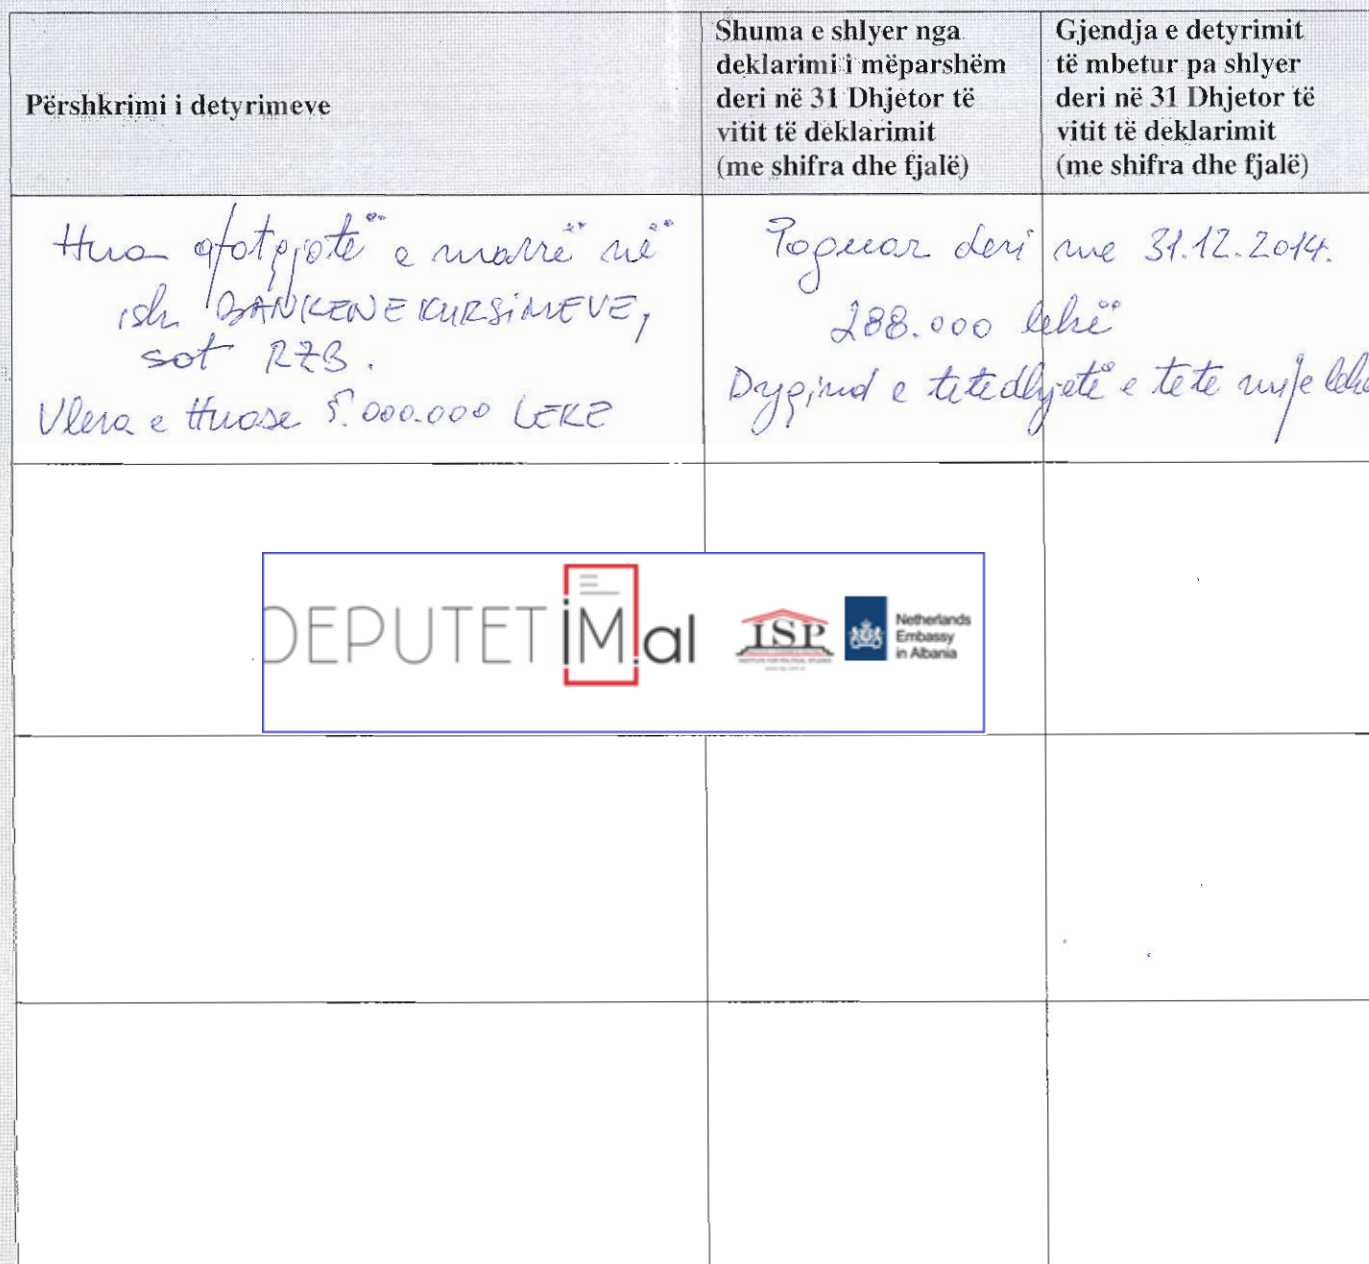 Përshkrimi i detyrimeve
Shuma e shlyer nga
deklarimi i mëparshëm
deri në 31 Dhjetor të
vitit të deklarimit
(me shifra dhe fjalë)
Gjendja e detyrimit
të mbetur pa shlyer
deri në 31 Dhjetor të
vitit të deklarimit
(me shifra dhe fjalë)
Hua afatgjatë e marrë në
ish BANKEN E KURSIMEVE,
sot RZB.
Vlera e Huase 5.000.000 LEKE
Paguar deri me 31.12.2014.
288.000 lekë
Dygind e tetedhjetë e tete mije leke
DEPUTETIM.al
ISP
INSTITUTE FOR POLITICAL STUDIES
Netherlands
Embassy
in Albania